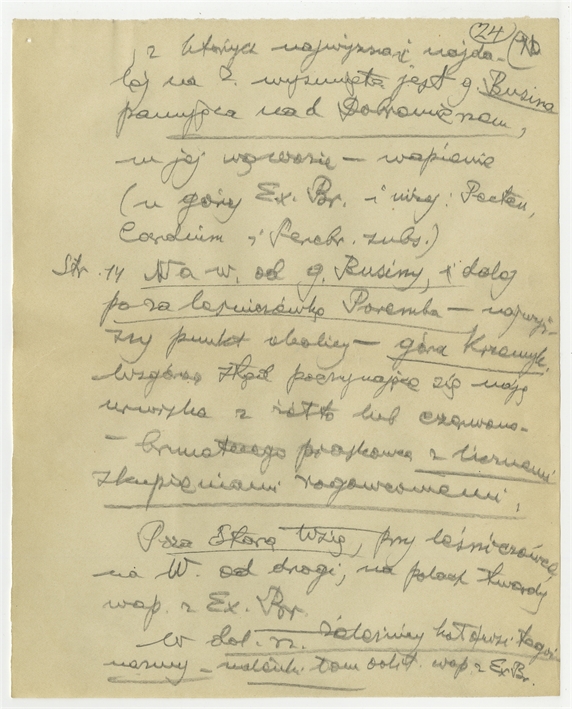 24
z których najwyższa i najda-
lej na
wysunięta jest g. Rusina
panująca nad
w jej wąwozie — wapienie
(u góry Ex. Br. i niżej: Pecten,
Cardium i Terebr. subs.)
Str. 14 Na w. od g. Rusiny, i dalej
poza leśniczówką Poremba — najwyż-
szy punkt okolicy — góra Krzemyk.
Wzgórza skąd poczynające się mają
urwiska z żółto lub czerwono-
— brunatnego piaskowca z licznemi
skupieniami rogowcowemi.
Poza Skarą Wzig, przy leśniczówce
na W. od drogi, na polach twardy
wap. z Ex. Br.
W dol. rz.
nazwy — oolit. wap. z Ex. Br.